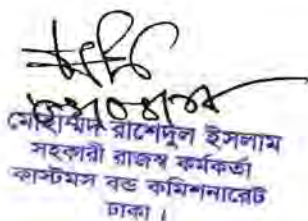 মোহাম্মদ রাশেদুল ইসলাম
সহকারী রাজস্ব কর্মকর্তা
কাস্টমস বন্ড কমিশনারেট
ঢাকা।